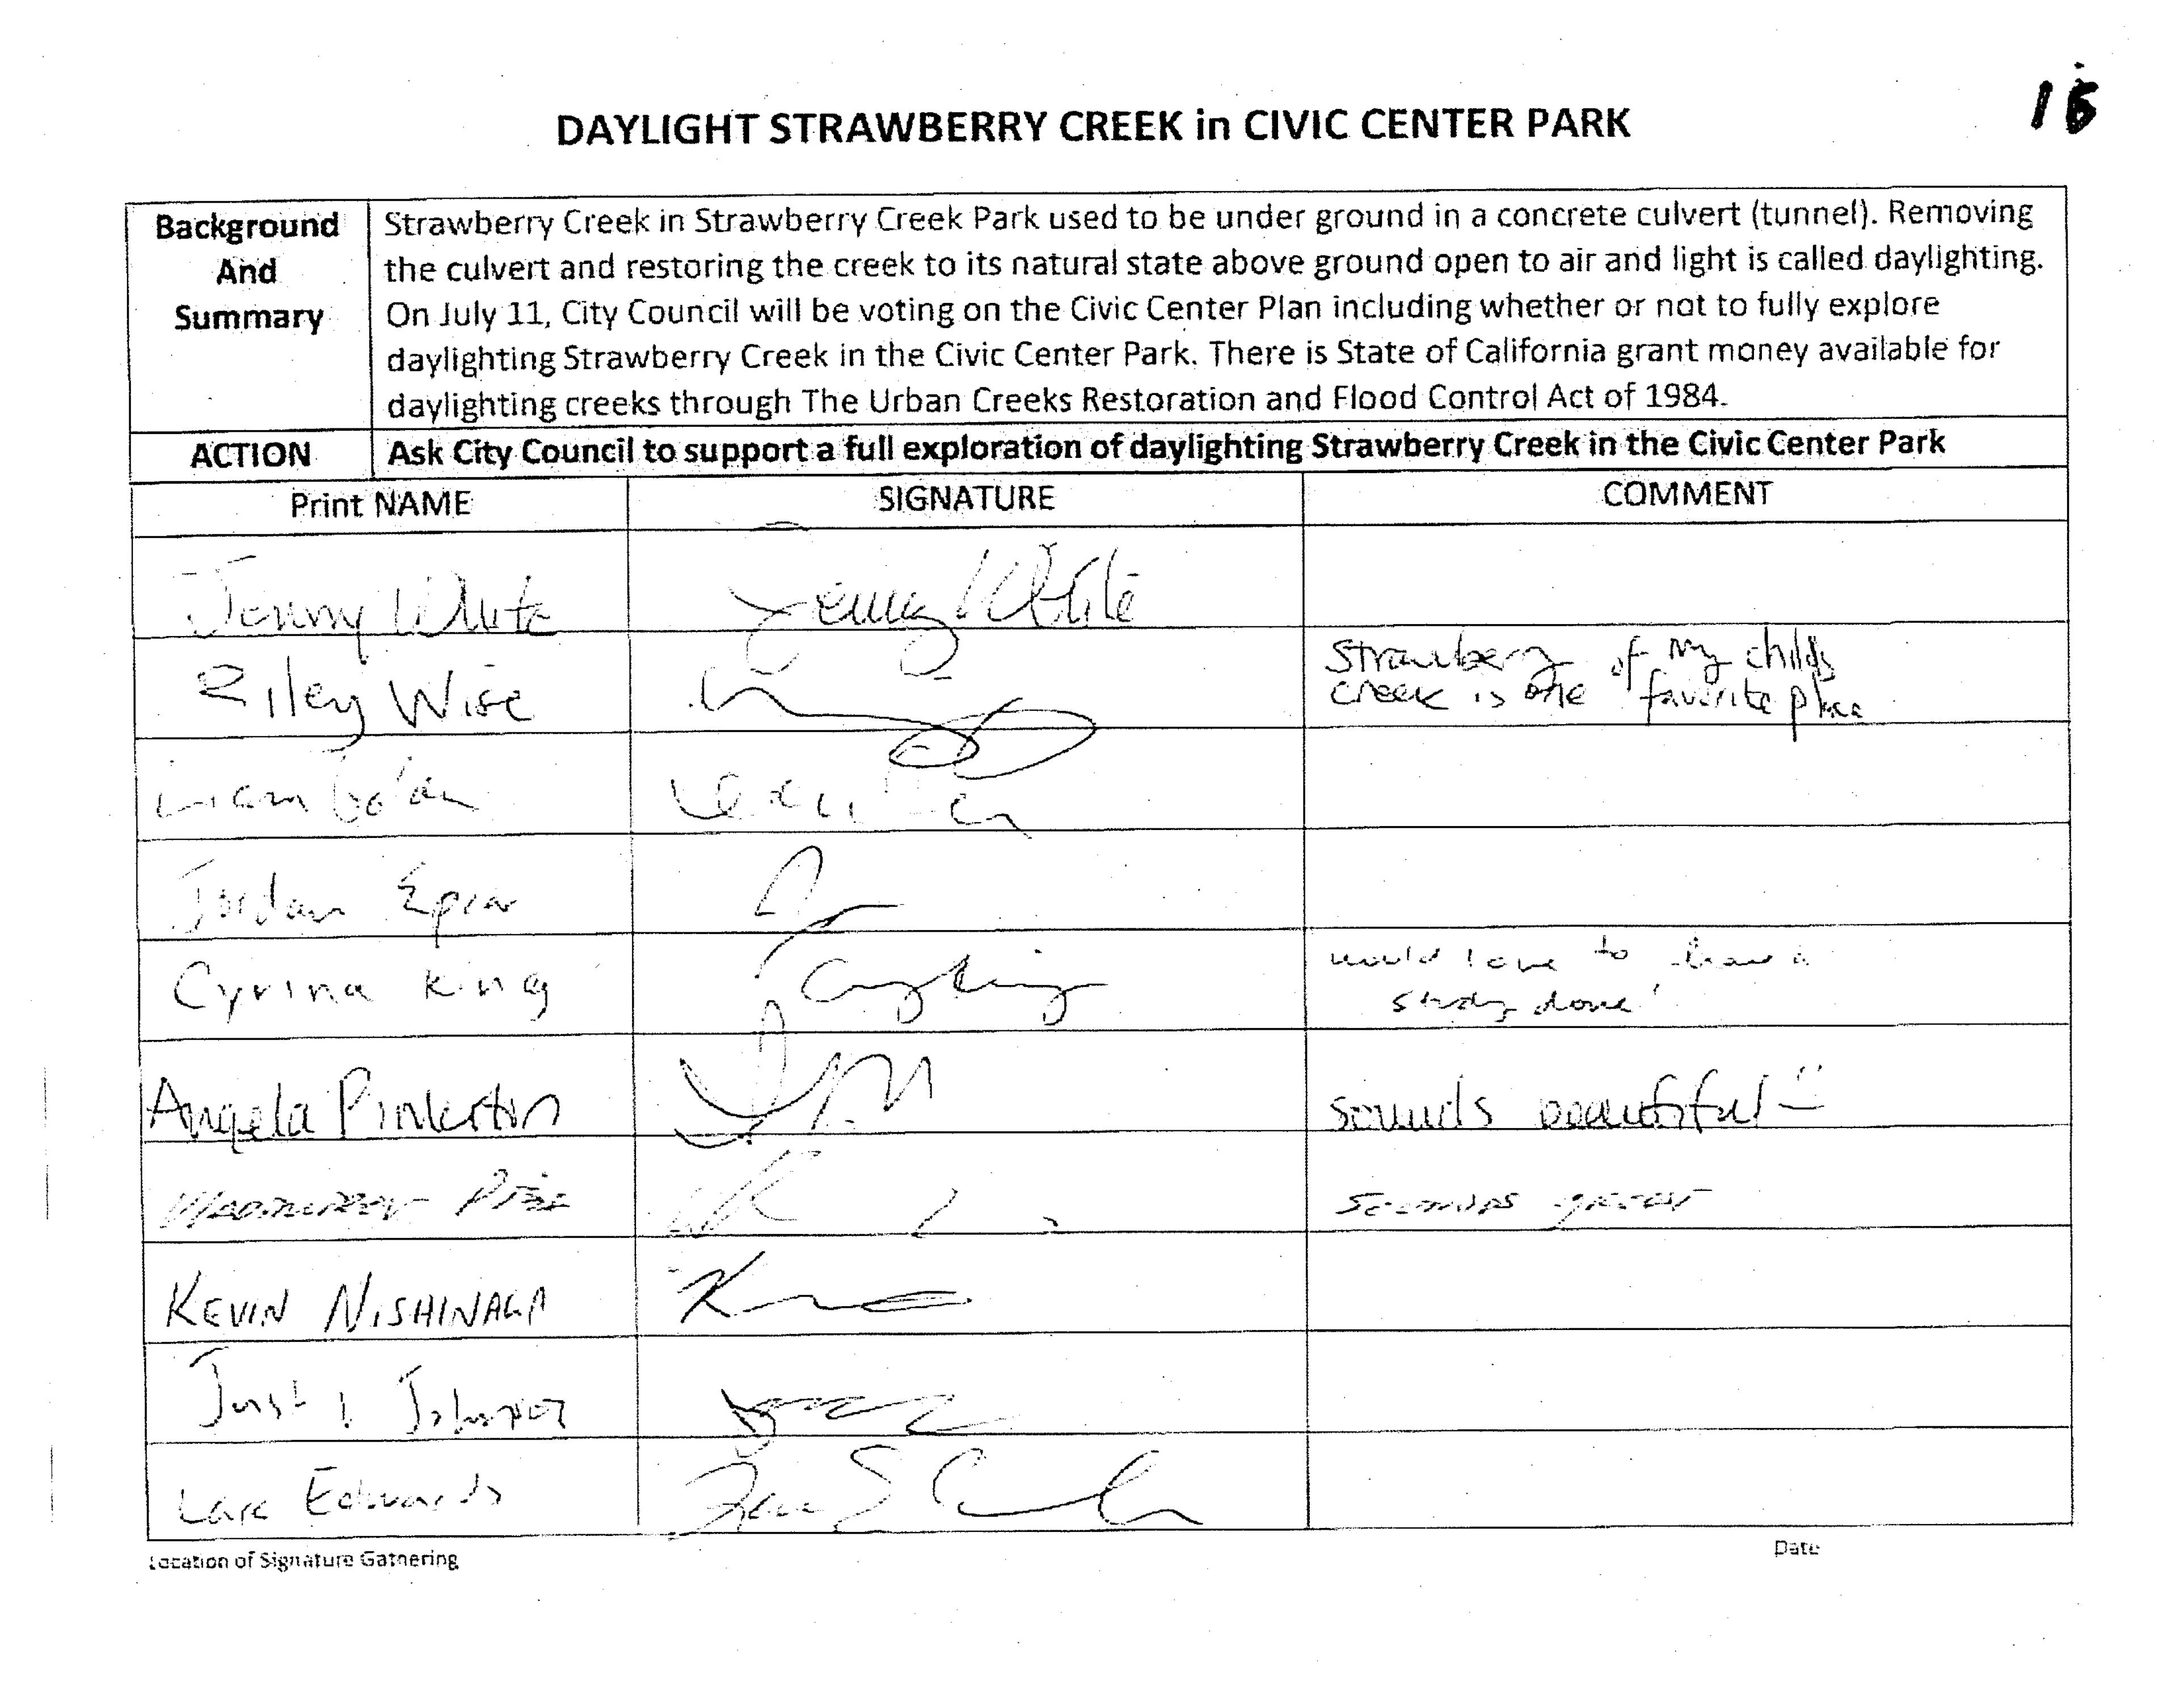 DAYLIGHT STRAWBERRY CREEK in CIVIC CENTER PARK
Background And Summary
Strawberry Creek in Strawberry Creek Park used to be under ground in a concrete culvert (tunnel). Removing
the culvert and restoring the creek to its natural state above ground open to air and light is called daylighting.
On July 11, City Council will be voting on the Civic Center Plan including whether or not to fully explore
daylighting Strawberry Creek in the Civic Center Park. There is State of California grant money available for
daylighting creeks through The Urban Creeks Restoration and Flood Control Act of 1984.
ACTION Ask City Council to support a full exploration of daylighting Strawberry Creek in the Civic Center Park
Print NAME SIGNATURE COMMENT
Jenny White Jenny White
Riley Wise
Strawberry of my childs
creek is one favorite place
Jordan
Cyrina King
would love to have a
study done!
Angela Pinkerton sounds beautiful
Sounds great
KEVIN NISHINAGA
Johnson
Edwards
Location of Signature Gathering Date